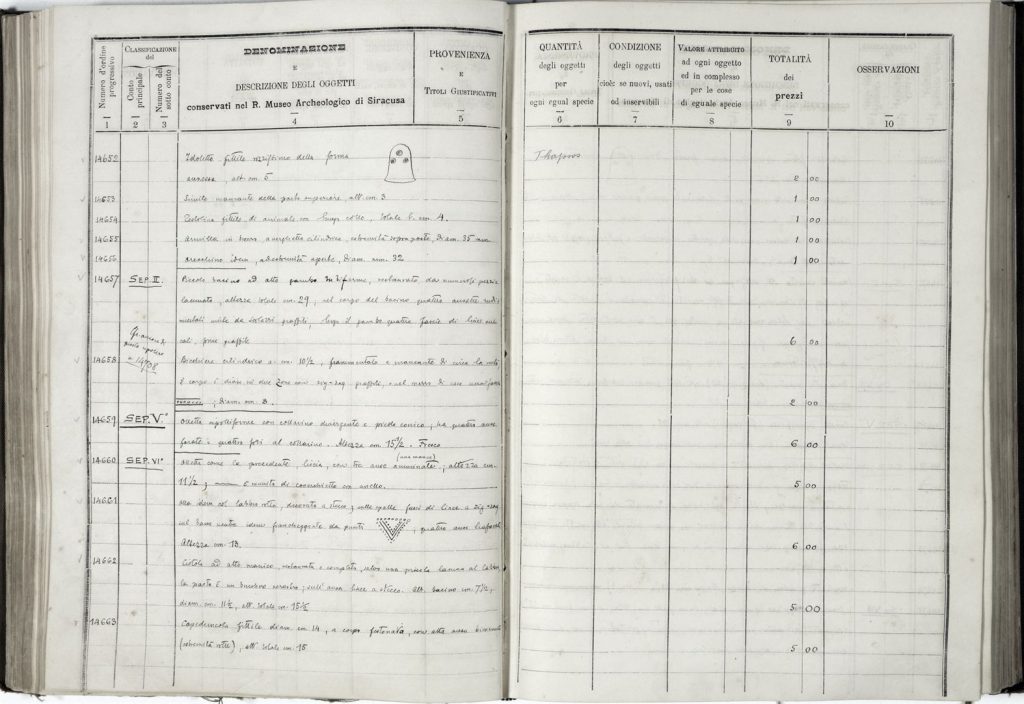 Numero d'ordine progressivo
1
CLASSIFICAZIONE
del
Conto principale
2
Numero del sotto conto
3
DENOMINAZIONE
E
DESCRIZIONE DEGLI OGGETTI
conservati nel R. Museo Archeologico di Siracusa
4
PROVENIENZA
E
TITOLI GIUSTIFICATIVI
5
14652 Idoletto fittile della forma
annessa, alt. cm. 5
14653 Simile mancante della parte superiore, alt. cm 3
14654 fittile di animale con lungo collo, totale l. cm 4.
14655 Armilla in bronzo a verghetta cilindrica, estremità sopraposte, diam. 35 mm
14656 Orecchino idem, ad estremità aperte, diam. mm. 32
14657 SEP. II. Piccolo bacino ad alto gambo restaurato da numerosi pezzi e
lacunato, altezza totale cm. 29, nel corpo del bacino quattro ansette rudi-
mentali lungo il gambo quattro fascie di linee
graffite
14708
14658 Bicchiere cilindrico a. cm. 10 1/2, frammentato e mancante di circa la metà
il corpo è diviso in due zone con zig-zag graffite, e nel mezzo di esse
; diam. cm. 8.
14659 SEP. V.° Olletta con collarino divergente e piede conico; ha quattro anse
forate e quattro fori al collarino. Altezza cm 15 1/2. Fresco
14660 SEP. VI° Olletta come la precedente liscia, con tre anse (una manca) ; altezza cm.
11 1/2; è munita di coperchietto con anello.
14661 Alla idem col labbro rotto, decorata a stecco; sulle spalle fasci di linee a zig-zag
sul basso ventre idem fiancheggiate da punti ; quattro anse
Altezza cm. 13.
14662 Ciotola ad alto manico, restaurata e completa, salvo una piccola lacuna al labbro,
la pasta è un bucchero nerastro; sull'ansa linee a stecco. Alt. bacino cm. 7 1/2,
diam. cm. 11 1/2, alt. totale cm. 15 1/2
14663 Capeduncola fittile diam. cm 14, a corpo con alta ansa
(estremità rotte), alt. totale cm. 15
QUANTITÀ
degli oggetti
per
ogni egual specie
6
CONDIZIONE
degli oggetti
cioè: se nuovi, usati
od inservibili
7
VALORE ATTRIBUITO
ad ogni oggetto
ed in complesso
per le cose
di eguale specie
8
TOTALITÀ
dei
prezzi
9
OSSERVAZIONI
10
Thapsos
2 00
1 00
1 00
1 00
1 00
6 00
2 00
6 00
5 00
6 00
5 00
5 00